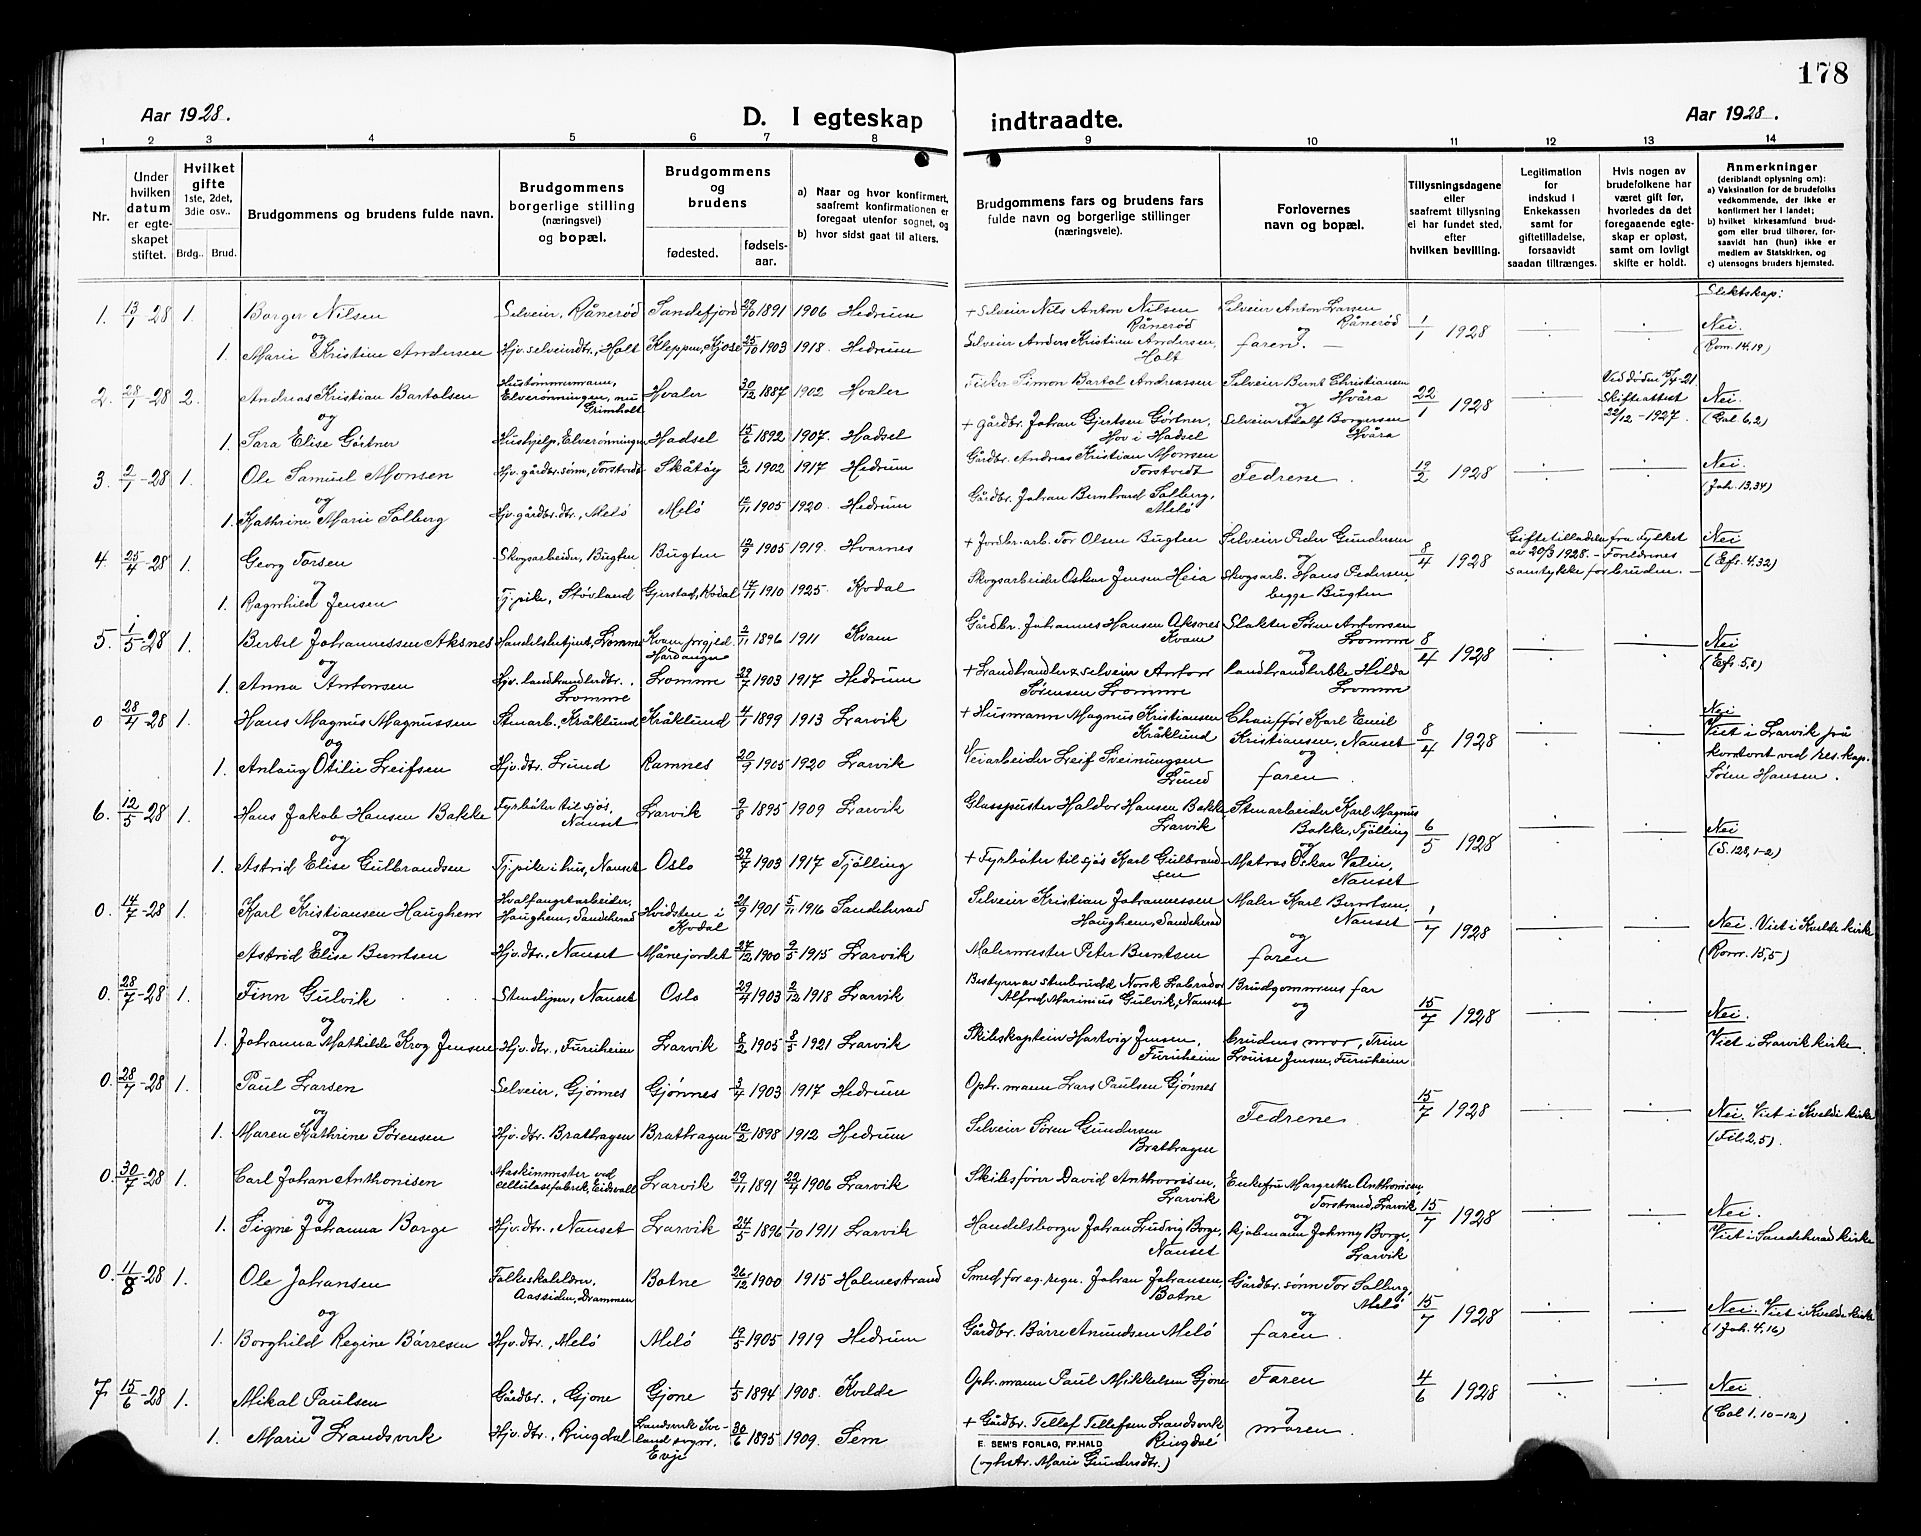 178
Aar 1928.
D. I egteskap indtraadte.
Aar 1928.
1 2 3 4 5 6 7 8 9 10 11 12 13 14
Nr.
Under hvilken datum er egteskapet stiftet.
Hvilket gifte 1ste, 2det, 3die osv..
Brdg.. Brud.
Brudgommens og brudens fulde navn.
Brudgommens borgerlige stilling (næringsvei) og bopæl.
Brudgommens og brudens
fødested. fødselsaar.
a) Naar og hvor konfirmert, saafremt konfirmationen er foregaat utenfor sognet, og
b) hvor sidst gaat til alters.
Brudgommens fars og brudens fars fulde navn og borgerlige stillinger (næringsveie).
Forlovernes navn og bopæl.
Tillysningsdagene eller saafremt tillysning ei har fundet sted, efter hvilken bevilling.
Legitimation for indskud i Enkekassen samt for giftetilladelse, forsaavidt saadan tiltrænges.
Hvis nogen av brudefolkene har været gift før, hvorledes da det foregaaende egteskap er opløst, samt om lovligt skifte er holdt.
Anmerkninger (deriblandt oplysning om):
a) Vaksination for de brudefolks vedkommende, der ikke er konfirmert her i landet;
b) hvilket kirkesamfund brudgom eller brud tilhører, forsaavidt han (hun) ikke er medlem av Statskirken, og
c) utensogns bruders hjemsted.
Slektskap:
1. 13/1-28 1. Borger Nilsen Selveier, Rånerød Sandefjord 29/10 1891 1906 Hedrum + Selveier Nils Anton Nilsen Rånerød Selveier Anton Larsen Rånerød 1/1 1928 Nei.
og
1. Marie Kristine Andersen Hjv. selveierdtr., Holt Kleppen, Kjose 25/10 1903 1918. Hedrum Selveier Anders Kristian Andersen, Holt og faren. (Rom. 14,19)
2. 28/1-28 2. Andreas Kristian Bartolsen Hustømmermann, Elverønningen, nu Grimholt Hvaler 30/12 1887 1902 Hvaler Fisker Simon Bartol Andreassen Selveier Bernt Christiansen Hvåra 22/1 1928 Ved døden 4-21. Skifteattest 22/12-1927. Nei.
og
1. Sara Elise Görtner Hushjelp, Elverønningen Hadsel 15/6 1892 1907. Hadsel + Gårdbr. Johan Gjertsen Görtner, Hov i Hadsel og Selveier Adolf Borgersen Hvåra (Gal. 6,2)
3. 2/1-28 1. Ole Samuel Monsen Hjv. gårdbr.sønn, Torstvedt Skåtøy 6/2 1902 1917 Hedrum Gårdbr. Andreas Kristian Monsen Torstvedt Fedrene. 19/2 1928 Nei.
og
1. Kathrine Marie Solberg Hjv. gårdbr.dtr., Melö Melö 12/11 1905 1920. Hedrum Gårdbr. Johan Bernhard Solberg, Melö (Joh. 13,34)
4. 25/4-28 1. Georg Torsen Skogsarbeider, Bugten Bugten 12/9 1905 1919. Hvarnes + Jordbr.arb. Tor Olsen Bugten Selveier Peder Gundersen 8/4 1928 Giftetilladelse fra Fylket av 20/3 1928. - Foreldrenes samtykke for bruden. Nei
og
1. Ragnhild Jensen Tj.pike, Stövland Gjerstad, Kodal 17/11 1910 1925. Kodal Skogsarbeider Oskar Jensen Heia og Skogsarb. Hans Pedersen, begge Bugten (Efs. 4.32)
5. 1/5-28 1. Bertel Johannessen Aksnes Handelsbetjent, Lomme Kvam prgjeld. Hardanger 2/11 1896 1911 Kvam Gårdbr. Johannes Hansen Aksnes Kvam Slakter Søren Antonsen Lomme 8/4 1928 Nei
og
1. Anna Antonsen Hjv. landhandlerdtr., Lomme Lomme 29/7 1903 1917 Hedrum + Landhandler & selveier Anton Sørensen Lomme og landhandlerske Hilda Lomme (Efs. 5,8)
0 28/4-28 1. Hans Magnus Magnussen Stenarb., Kråklund Kråklund 4/1 1899 1913 Larvik + Husmann Magnus Kristiansen Kråklund Chauffør Karl Emil Kristiansen, Nanset 8/4 1928 Nei
og
1. Anlaug Otilie Leifsen Hjv. dtr. Lund Ramnes 20/9 1905 1920 Larvik Veiarbeider Leif Sveinungsen Lund og faren. Viet i Larvik på kontoret ved res. kap. Sören Hansen.
6. 12/5-28 1. Hans Jakob Hansen Bakke Fyrbøter til sjøs, Nanset Larvik 9/8 1895 1909 Larvik Glasspuster Haldor Hansen Bakke Larvik Stenarbeider Karl Magnus Bakke, Tjølling 6/5 1928 Nei
og
1. Astrid Elise Gulbrandsen Tj.pike i hus, Nanset Oslo 29/7 1903 1917 Tjølling + Fyrbøter til sjøs Karl Gulbrandsen og Matros Oskar Valin, Nanset (S. 128, 1-2)
0. 14/7-28 1. Karl Kristiansen Haughem Hvalfangstarbeider, Haughem, Sandeherad Hvidsten i Kodal 21/9 1901 5/11 1916 Sandeherad Selveier Kristian Johannessen Haughem, Sandeherad Maler Karl Berntsen, Nanset 1/7 1928 Nei. Viet i Kvelde kirke
og
Astrid Elise Berntsen Hjv. dtr., Nanset Månejordet 27/12 1900 9/5 1915 Larvik Malermester Peter Berntsen og faren (Rom. 15,5)
0. 28/7-28 1. Finn Gulvik Stensliper, Nanset Oslo 29/4 1903 2/12 1918 Larvik Bestyrer av stenbrudd Norsk Labrador Alfred Marinius Gulvik, Nanset Brudgommens far 15/7 1928 Nei.
og
1. Johanna Mathilde Krog Jensen Hjv. dtr., Furuheim Larvik 8/2 1905 8/5 1921 Larvik Skibskaptein Hartvig Jensen, Furuheim og brudens mor, Frue Louise Jensen, Furuheim Viet i Larvik kirke.
0. 28/7-28 1. Paul Larsen Selveier, Gjønnes Gjønnes 3/4 1903 1917 Hedrum Ophr. mann Lars Paulsen Gjønnes Fedrene. 15/7 1928 Nei. Viet i Kvelde kirke
og
1. Maren Kathrine Sørensen Hjv. dtr. Brathagen Brathagen 12/2 1898 1912 Hedrum Selveier Søren Gundersen Brathagen (Fil. 2,5).
0. 30/7-28 1. Carl Johan Anthonisen Maskinmester ved cellulosefabrik, Eidsvoll Larvik 29/11 1891 22/4 1906 Larvik Skibsfører David Anthonisen, Larvik Enkefru Margrethe Anthonisen, Torstrand, Larvik 15/7 1928 Nei.
og
1. Signe Johanna Borge Hjv. dtr., Nanset Larvik 24/5 1896 1/10 1911 Larvik Handelsborger Johan Ludvig Borge, Nanset og kjøbmann Johnny Borge, Larvik Viet i Sandeherad kirke
0. 11/8-28 1. Ole Johansen Folkeskolelærer, Aassiden, Drammen Botne 26/12 1900 1915 Holmestrand Smed for eg. regn. Johan Johansen, Botne Gårdbr. sønn Tor Solberg, Melö 15/7 1928 Nei. Viet i Kvelde kirke
og
1. Borghild Regine Börresen Hjv. dtr., Melö Melö 19/5 1905 1919 Hedrum Gårdbr. Börre Amundsen Melö og faren. (1 Joh. 4,16)
7. 15/6-28 1. Mikal Paulsen Gårdbr., Gjone Gjone 1/5 1894 1908. Kvelde Ophr. mann Paul Mikkelsen Gjone Faren 4/6 1928 Nei
og
1. Marie Landsverk Hjv. dtr., Ringdal Landsverk Iveland sogn, Evje 30/6 1895 1909. Sem + Gårdbr. Tellef Tellefsen Landsverk Ringdal og moren. (Col 1, 10-12)
E. SEM'S FORLAG, FR.HALD
(og hstr. Marie Gundersdtr.)